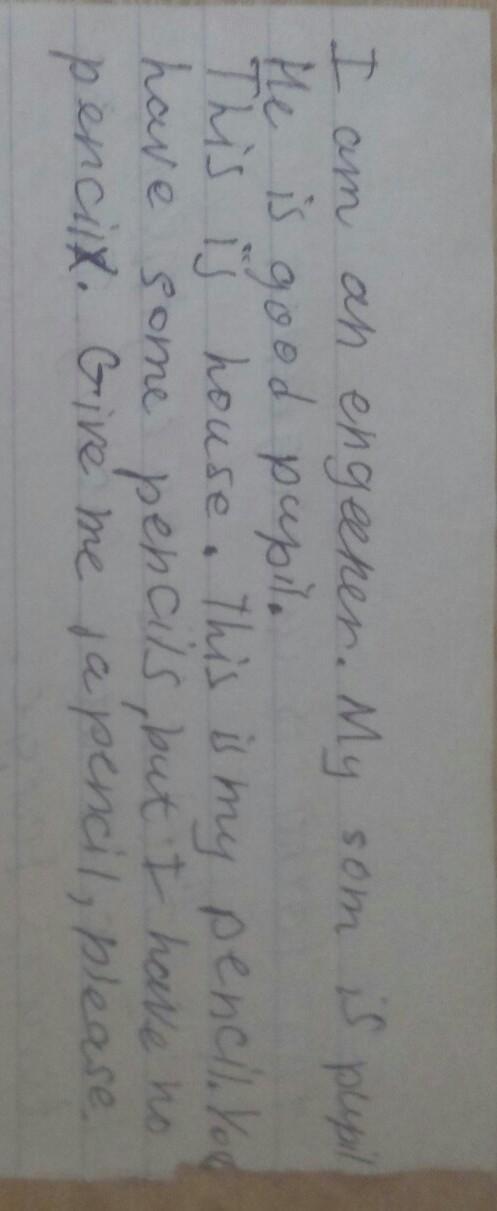 I am an engeener. My som is pupil
He is good pupil.
This is house. This is my pencil. You
have some pencils, but I have no
pencil. Give me a pencil, please.